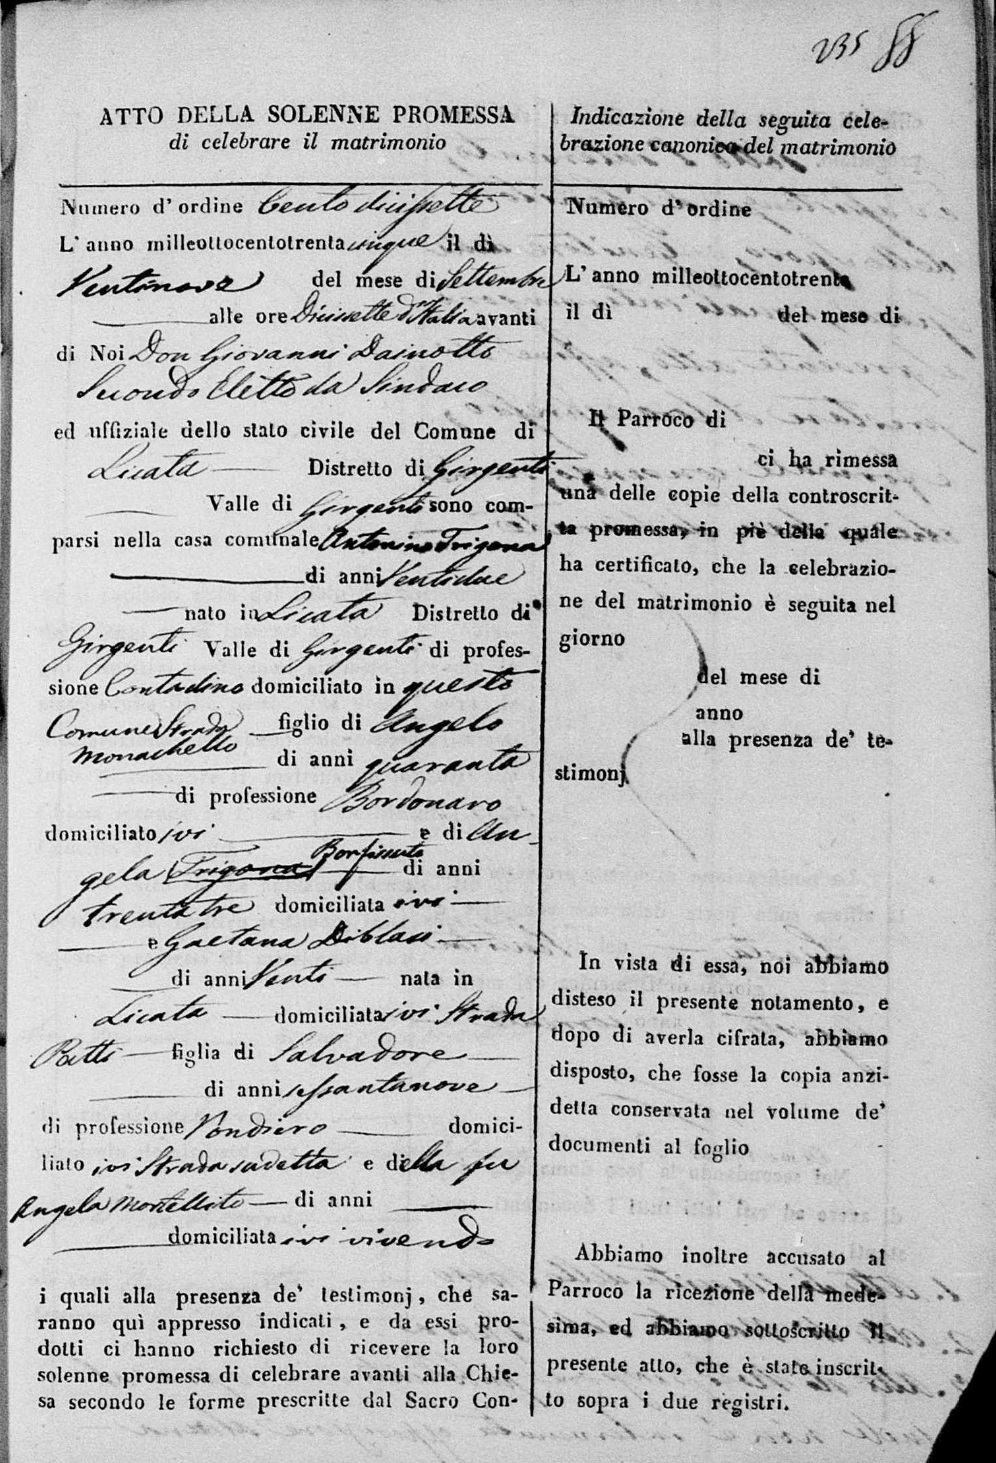 235
ATTO DELLA SOLENNE PROMESSA
di celebrare il matrimonio
Numero d' ordine Cento diciissette
L' anno milleottocentotrentacinque il dì
Ventinove del mese di Settembre
alle ore Diciissette d'Italia avanti
di Noi Don Giovanni Dainotto
Secondo Eletto da Sindaco
ed uffiziale dello stato civile del Comune di
Licata Distretto di Girgenti
Valle di Girgenti sono com-
parsi nella casa comunale Antonino Trigona
di anni Ventidue
nato in Licata Distretto di
Girgenti Valle di Girgenti di profes-
sione Contadino domiciliato in questo
Comune Strada figlio di Angelo
Monachello di anni quaranta
di professione Bordonaro
domiciliato ivi e di An-
gela Trigona Bonfissuto di anni
trentatre domiciliata ivi
e Gaetana Diblasi
di anni Venti nata in
Licata domiciliata ivi Strada
Patti figlia di Salvadore
di anni sessantanove
di professione Vondiero domici-
liato ivi Strada sudetta e della fu
Angela Mortellito di anni
domiciliata ivi vivendo
i quali alla presenza de' testimonj, che sa-
ranno quì appresso indicati, e da essi pro-
dotti ci hanno richiesto di ricevere la loro
solenne promessa di celebrare avanti alla Chie-
sa secondo le forme prescritte dal Sacro Con-
Indicazione della seguita cele-
brazione canonica del matrimonio
Numero d' ordine
L' anno milleottocentotrenta
il dì del mese di
Il Parroco di
ci ha rimessa
una delle copie della controscrit-
ta promessa, in piè della quale
ha certificato, che la celebrazio-
ne del matrimonio è seguita nel
giorno
del mese di
anno
alla presenza de' te-
stimonj
In vista di essa, noi abbiamo
disteso il presente notamento, e
dopo di averla cifrata, abbiamo
disposto, che fosse la copia anzi-
detta conservata nel volume de'
documenti al foglio
Abbiamo inoltre accusato al
Parroco la ricezione della mede-
sima, ed abbiamo sottoscritto il
presente atto, che è stato inscrit-
to sopra i due registri.